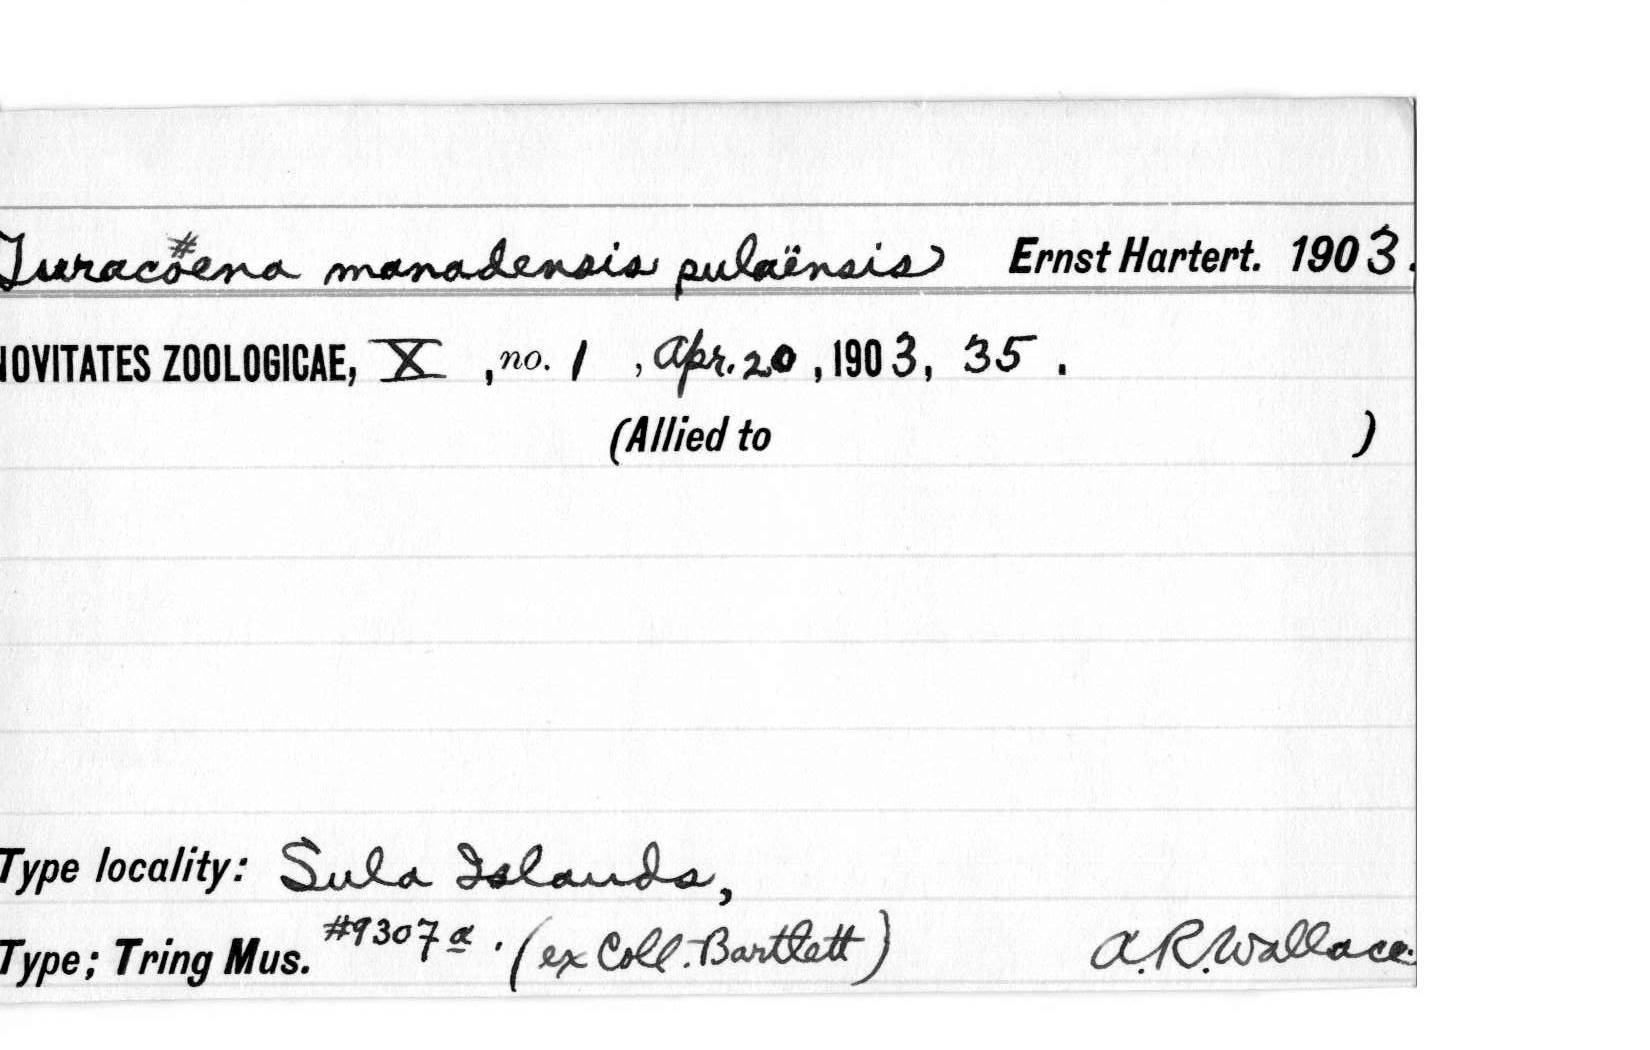 Turacoena manadensis pulaënsis Ernst Hartert. 1903.
NOVITATES ZOOLOGICAE, X, no. 1, Apr. 20, 1903, 35.
(Allied to )
Type locality: Sula Islands,
Type; Tring Mus. #9307a. (ex Coll. Bartlett) A.R. Wallace.